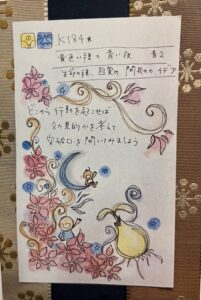 K184
黄色い種 青い夜 音2
生命の種、自覚め、開花の力、イデア
どこから行動を起こせば
効果的かを考えて
突破口を開いてみましょう